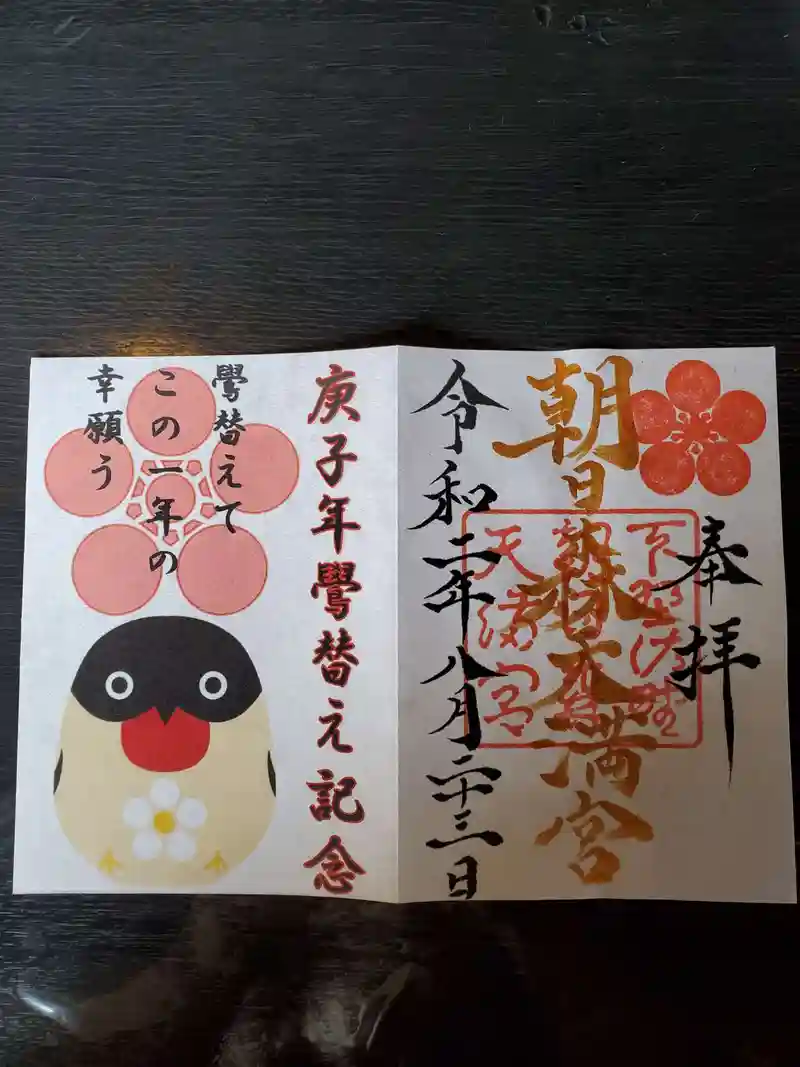 奉拝
朝日森天満宮
下野佐野
天満宮
令和二年八月二十三日
庚子年鷽替え記念
鷽替えて
この一年の
幸願う